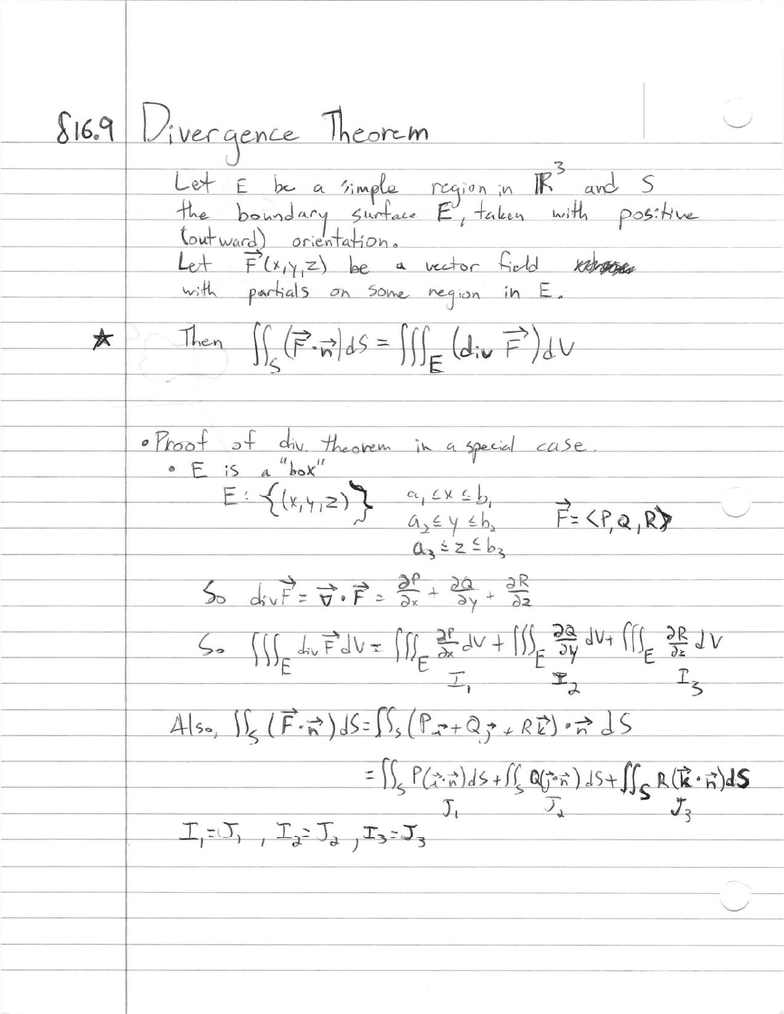 §16.9 Divergence Theorem
Let E be a simple region in ℝ³ and S
the boundary surface E, taken with positive
(outward) orientation.
Let F⃗(x,y,z) be a vector field
with partials on some region in E.
★ Then ∬_S (F⃗·n⃗)dS = ∭_E (div F⃗)dV
• Proof of div. theorem in a special case.
• E is a "box"
E: {(x,y,z)} a₁≤x≤b₁
a₂≤y≤b₂ F⃗=<P,Q,R>
a₃≤z≤b₃
So div F⃗ = ∇⃗·F⃗ = ∂P/∂x + ∂Q/∂y + ∂R/∂z
So ∭_E div F⃗ dV = ∭_E ∂P/∂x dV + ∭_E ∂Q/∂y dV + ∭_E ∂R/∂z dV
I₁ I₂ I₃
Also, ∬_S (F⃗·n⃗)dS = ∬_S (P i⃗ + Q j⃗ + R k⃗)·n⃗ dS
= ∬_S P(i⃗·n⃗)dS + ∬_S Q(j⃗·n⃗)dS + ∬_S R(k⃗·n⃗)dS
J₁ J₂ J₃
I₁=J₁, I₂=J₂, I₃=J₃